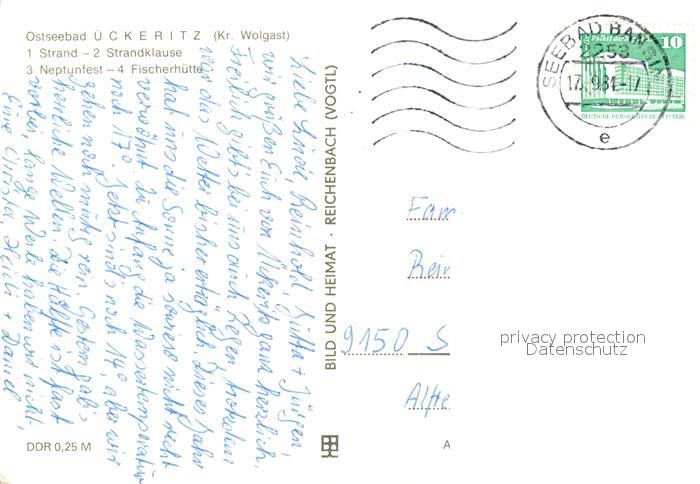 Ostseebad ÜCKERITZ (Kr. Wolgast)
1 Strand – 2 Strandklause
3 Neptunfest – 4 Fischerhütte
Liebe Linde, Reinhold, Jutta + Jürgen,
wir grüßen Euch von Ückeritz ganz herzlich.
Freilich gibts bei uns auch Regen, trotzdem
war das Wetter bisher erträglich. Dieses Jahr
hat uns die Sonne ja sowieso nicht recht
verwöhnt. Zu Anfang die Wassertemperatur
noch 17°. Jetzt sinds noch 14°, aber wir
gehen noch mutig rein. Gestern gab's
herrliche Wellen. Die Hälfte ist fast
vorbei, lange Weile haben wir nicht.
Eure Christa, Heidi + Daniel
BILD UND HEIMAT · REICHENBACH (VOGTL)
DDR 0,25 M
A
SEEBAD BANSIN
2253
17.-9.81.-17
e
Palast der Republik
10
DEUTSCHE DEMOKRATISCHE REPUBLIK
Fam.
Rein
9150 S
Alte
privacy protection
Datenschutz